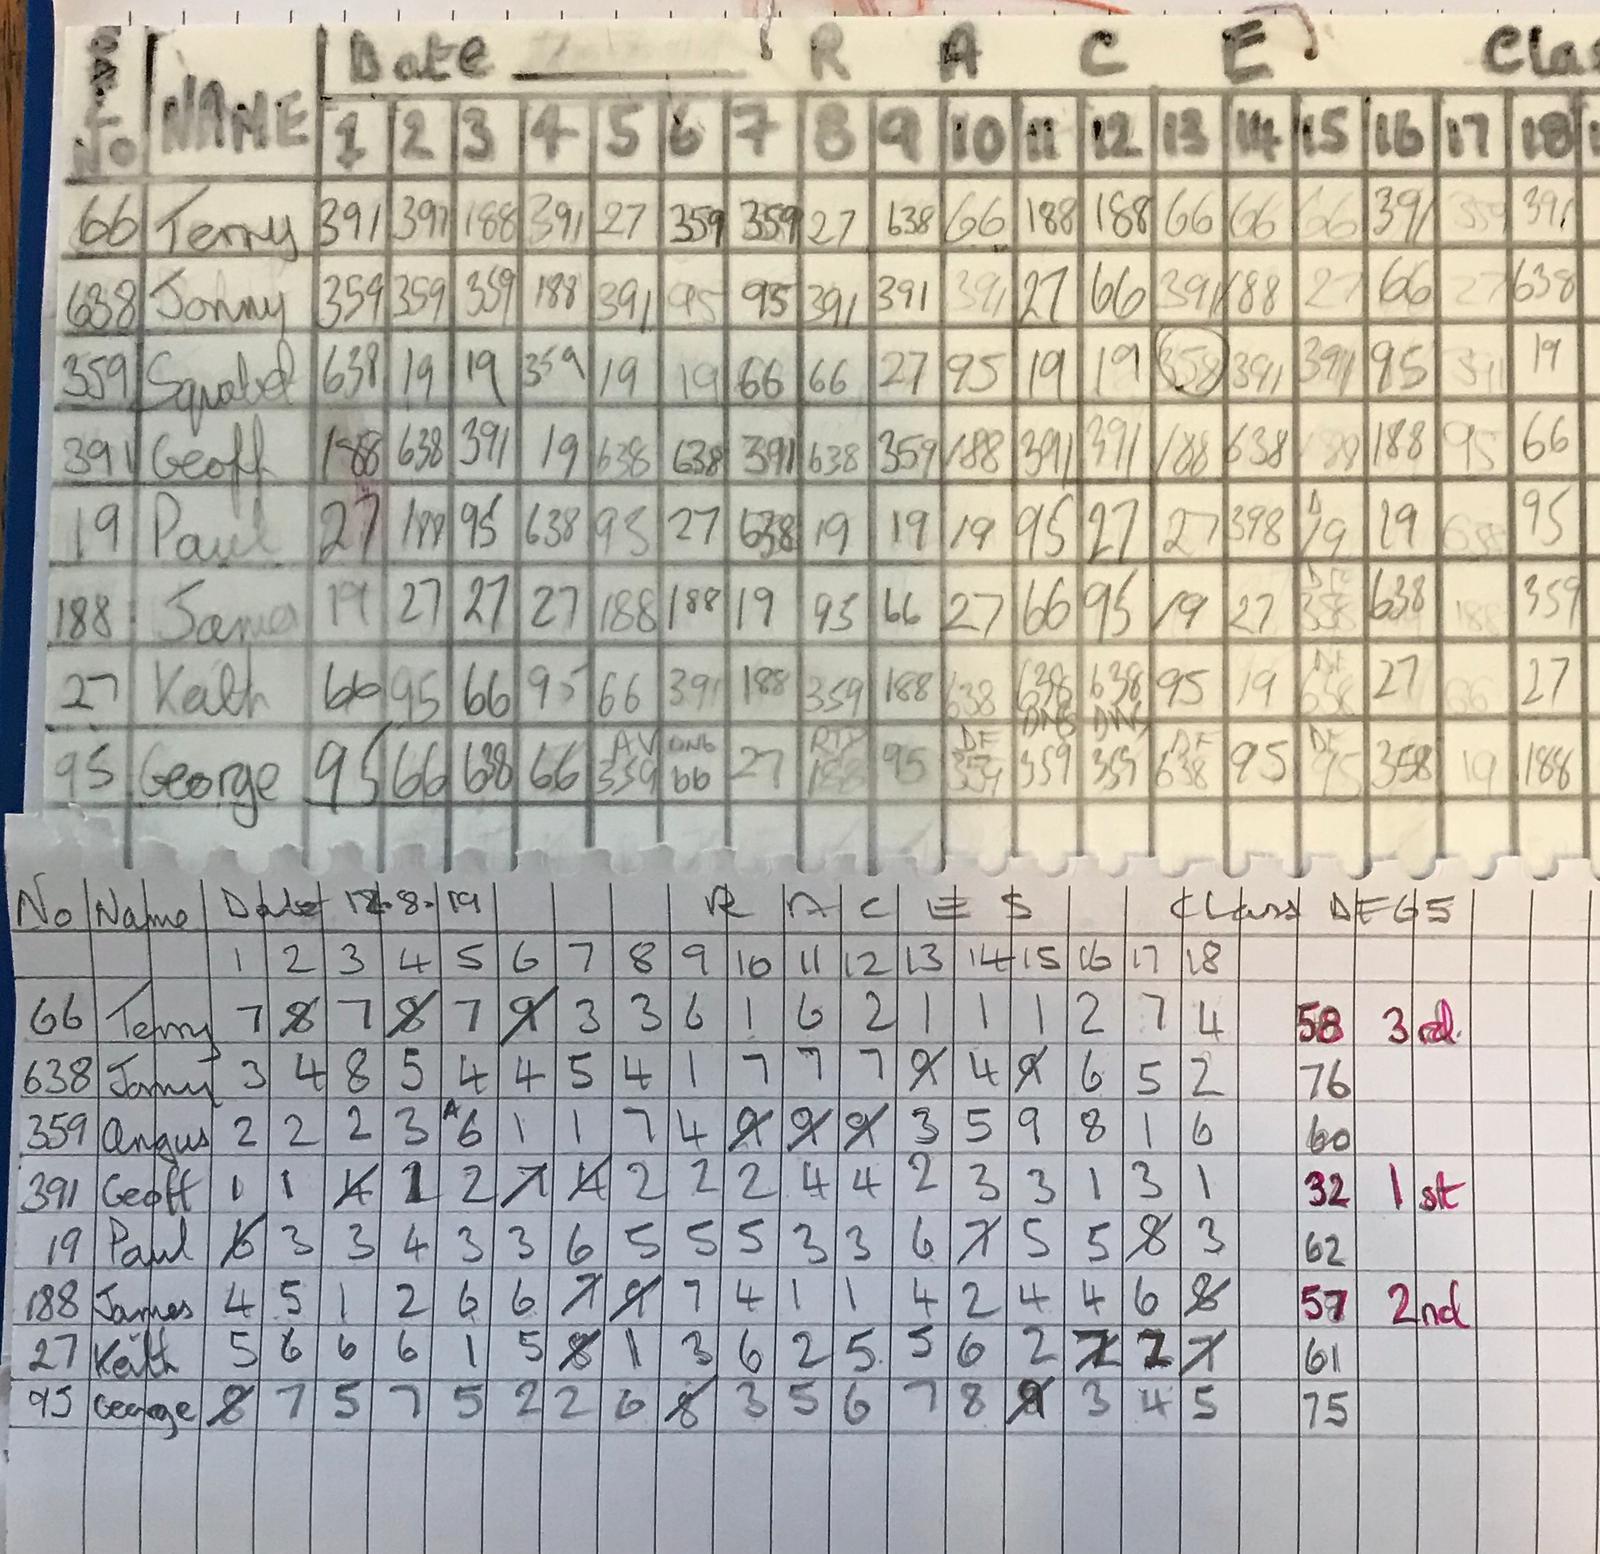 SAIL No NAME Date R A C E Clas
1 2 3 4 5 6 7 8 9 10 11 12 13 14 15 16 17 18
66 Terry 391 391 188 391 27 359 359 27 638 66 188 188 66 66 66 391 359 391
638 Jonny 359 359 359 188 391 95 95 391 391 391 27 66 391 188 27 66 27 638
359 638 19 19 359 19 19 66 66 27 95 19 19 358 391 391 95 391 19
391 Geoff 188 638 391 19 638 638 391 638 359 188 391 391 188 638 188 188 95 66
19 Paul 27 188 95 638 95 27 638 19 19 19 95 27 27 398 19 19 638 95
188 James 19 27 27 27 188 188 19 95 66 27 66 95 19 27 DF 358 638 188 359
27 Keith 66 95 66 95 66 391 188 359 188 638 638 DNS 638 DNS 95 19 DF 638 27 66 27
95 George 95 66 638 66 AV 359 66 27 RTD 188 95 DF 359 359 359 DF 638 95 DF 95 358 19 188
No Name Date 18.8.19 R A C E S Class DF65
1 2 3 4 5 6 7 8 9 10 11 12 13 14 15 16 17 18
66 Terry 7 8 7 8 7 9 3 3 6 1 6 2 1 1 1 2 7 4 58 3rd.
638 Jonny 3 4 8 5 4 4 5 4 1 7 7 7 9 4 9 6 5 2 76
359 Angus 2 2 2 3 A6 1 1 7 4 9 9 9 3 5 9 8 1 6 60
391 Geoff 1 1 4 1 2 7 4 2 2 2 4 4 2 3 3 1 3 1 32 1st
19 Paul 6 3 3 4 3 3 6 5 5 5 3 3 6 7 5 5 8 3 62
188 James 4 5 1 2 6 6 7 9 7 4 1 1 4 2 4 4 6 8 57 2nd
27 Keith 5 6 6 6 1 5 8 1 3 6 2 5 5 6 2 7 2 7 61
95 George 8 7 5 7 5 2 2 6 8 3 5 6 7 8 9 3 4 5 75